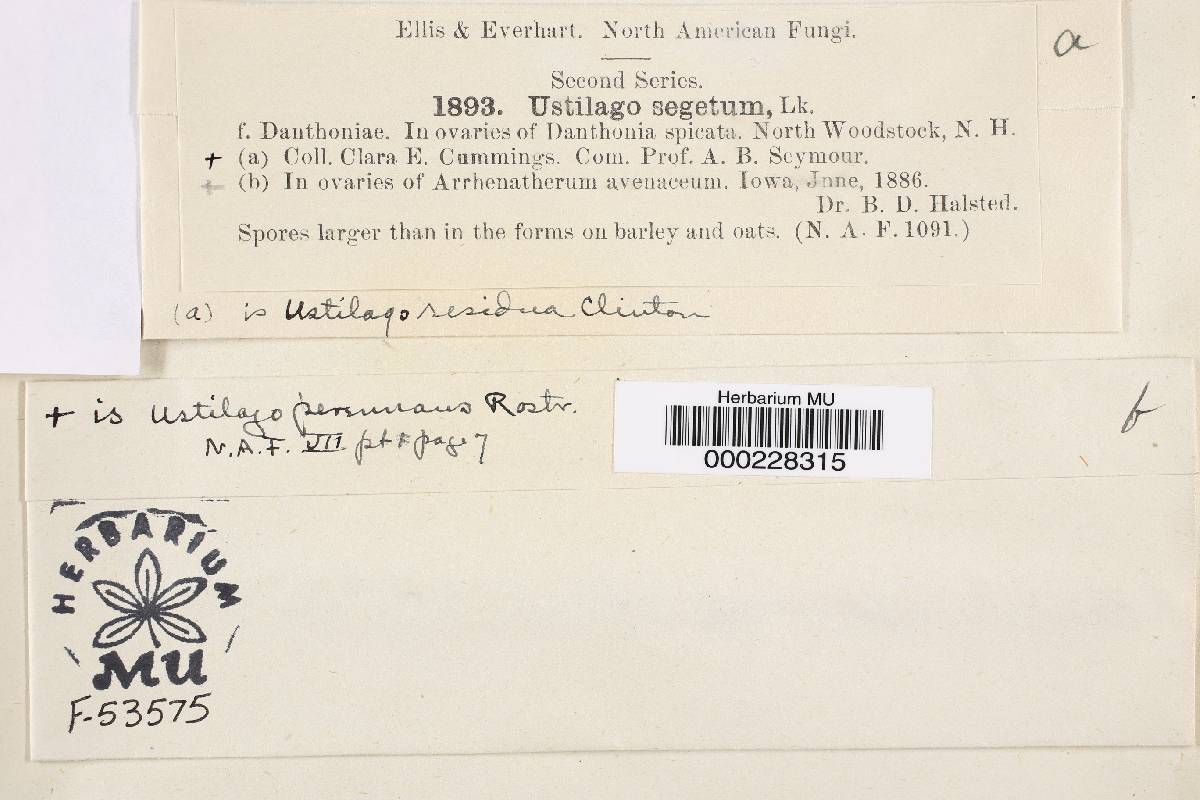 Ellis & Everhart. North American Fungi.
a
Second Series.
1893. Ustilago segetum, Lk.
f. Danthoniae. In ovaries of Danthonia spicata. North Woodstock, N. H.
+ (a) Coll. Clara E. Cummings. Com. Prof. A. B. Seymour.
+ (b) In ovaries of Arrhenatherum avenaceum. Iowa, June, 1886.
Dr. B. D. Halsted.
Spores larger than in the forms on barley and oats. (N. A. F. 1091.)
(a) is Ustilago residua Clinton
+ is Ustilago perennans Rostr.
N.A.F. VII pt 1 page 7
Herbarium MU
000228315
b
HERBARIUM
MU
F-53575